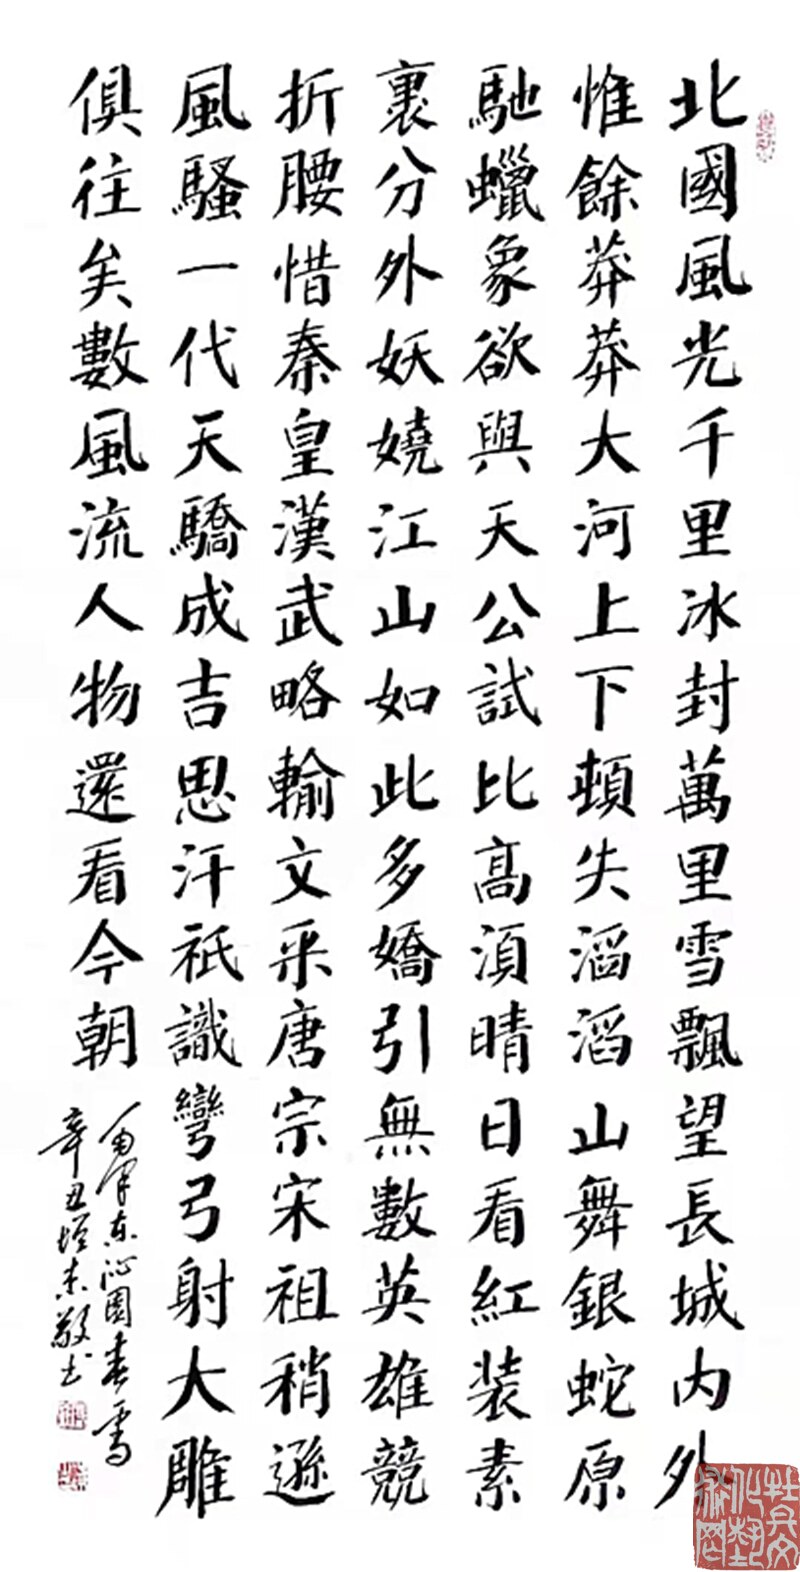 北國風光千里冰封萬里雪飄望長城内外
惟餘莽莽大河上下頓失滔滔山舞銀蛇原
馳蠟象欲與天公試比高須晴日看紅装素
裹分外妖嬈江山如此多嬌引無數英雄競
折腰惜秦皇漢武略輸文采唐宗宋祖稍遜
風騷一代天驕成吉思汗祇識彎弓射大雕
俱往矣數風流人物還看今朝
东沁園春雪
辛丑敬书